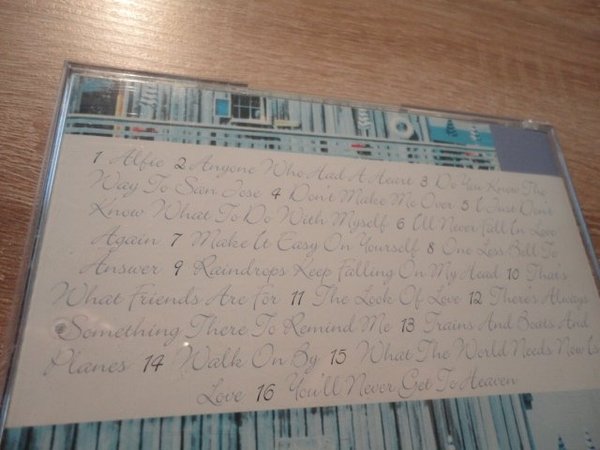 1 Alfie 2 Anyone Who Had A Heart 3 Do You Know The
Way To San Jose 4 Don't Make Me Over 5 I Just Don't
Know What To Do With Myself 6 I'll Never Fall In Love
Again 7 Make It Easy On Yourself 8 One Less Bell To
Answer 9 Raindrops Keep Falling On My Head 10 That's
What Friends Are For 11 The Look Of Love 12 There's Always
Something There To Remind Me 13 Trains And Boats And
Planes 14 Walk On By 15 What The World Needs Now Is
Love 16 You'll Never Get To Heaven